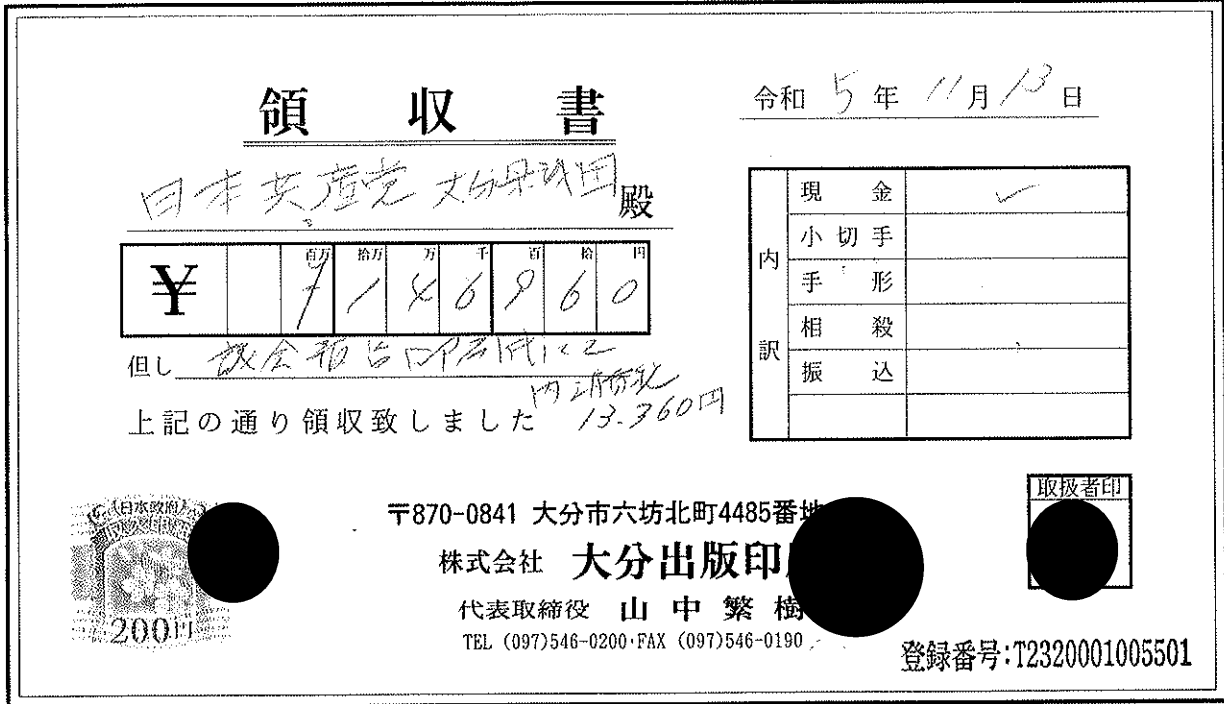 令和 5 年 11 月 13 日
領収書
日本共産党 大分県議団 殿
百万 拾万 万 千 百 拾 円
¥ ¥ 1 4 6 9 6 0
但し 議会報告印刷代として
内消費税
13.360円
上記の通り領収致しました
内訳
現金 ✓
小切手
手形
相殺
振込
日本政府
収入印紙
200円
〒870-0841 大分市六坊北町4485番地
株式会社 大分出版印
代表取締役 山中繁樹
TEL (097)546-0200・FAX (097)546-0190
取扱者印
登録番号:T2320001005501